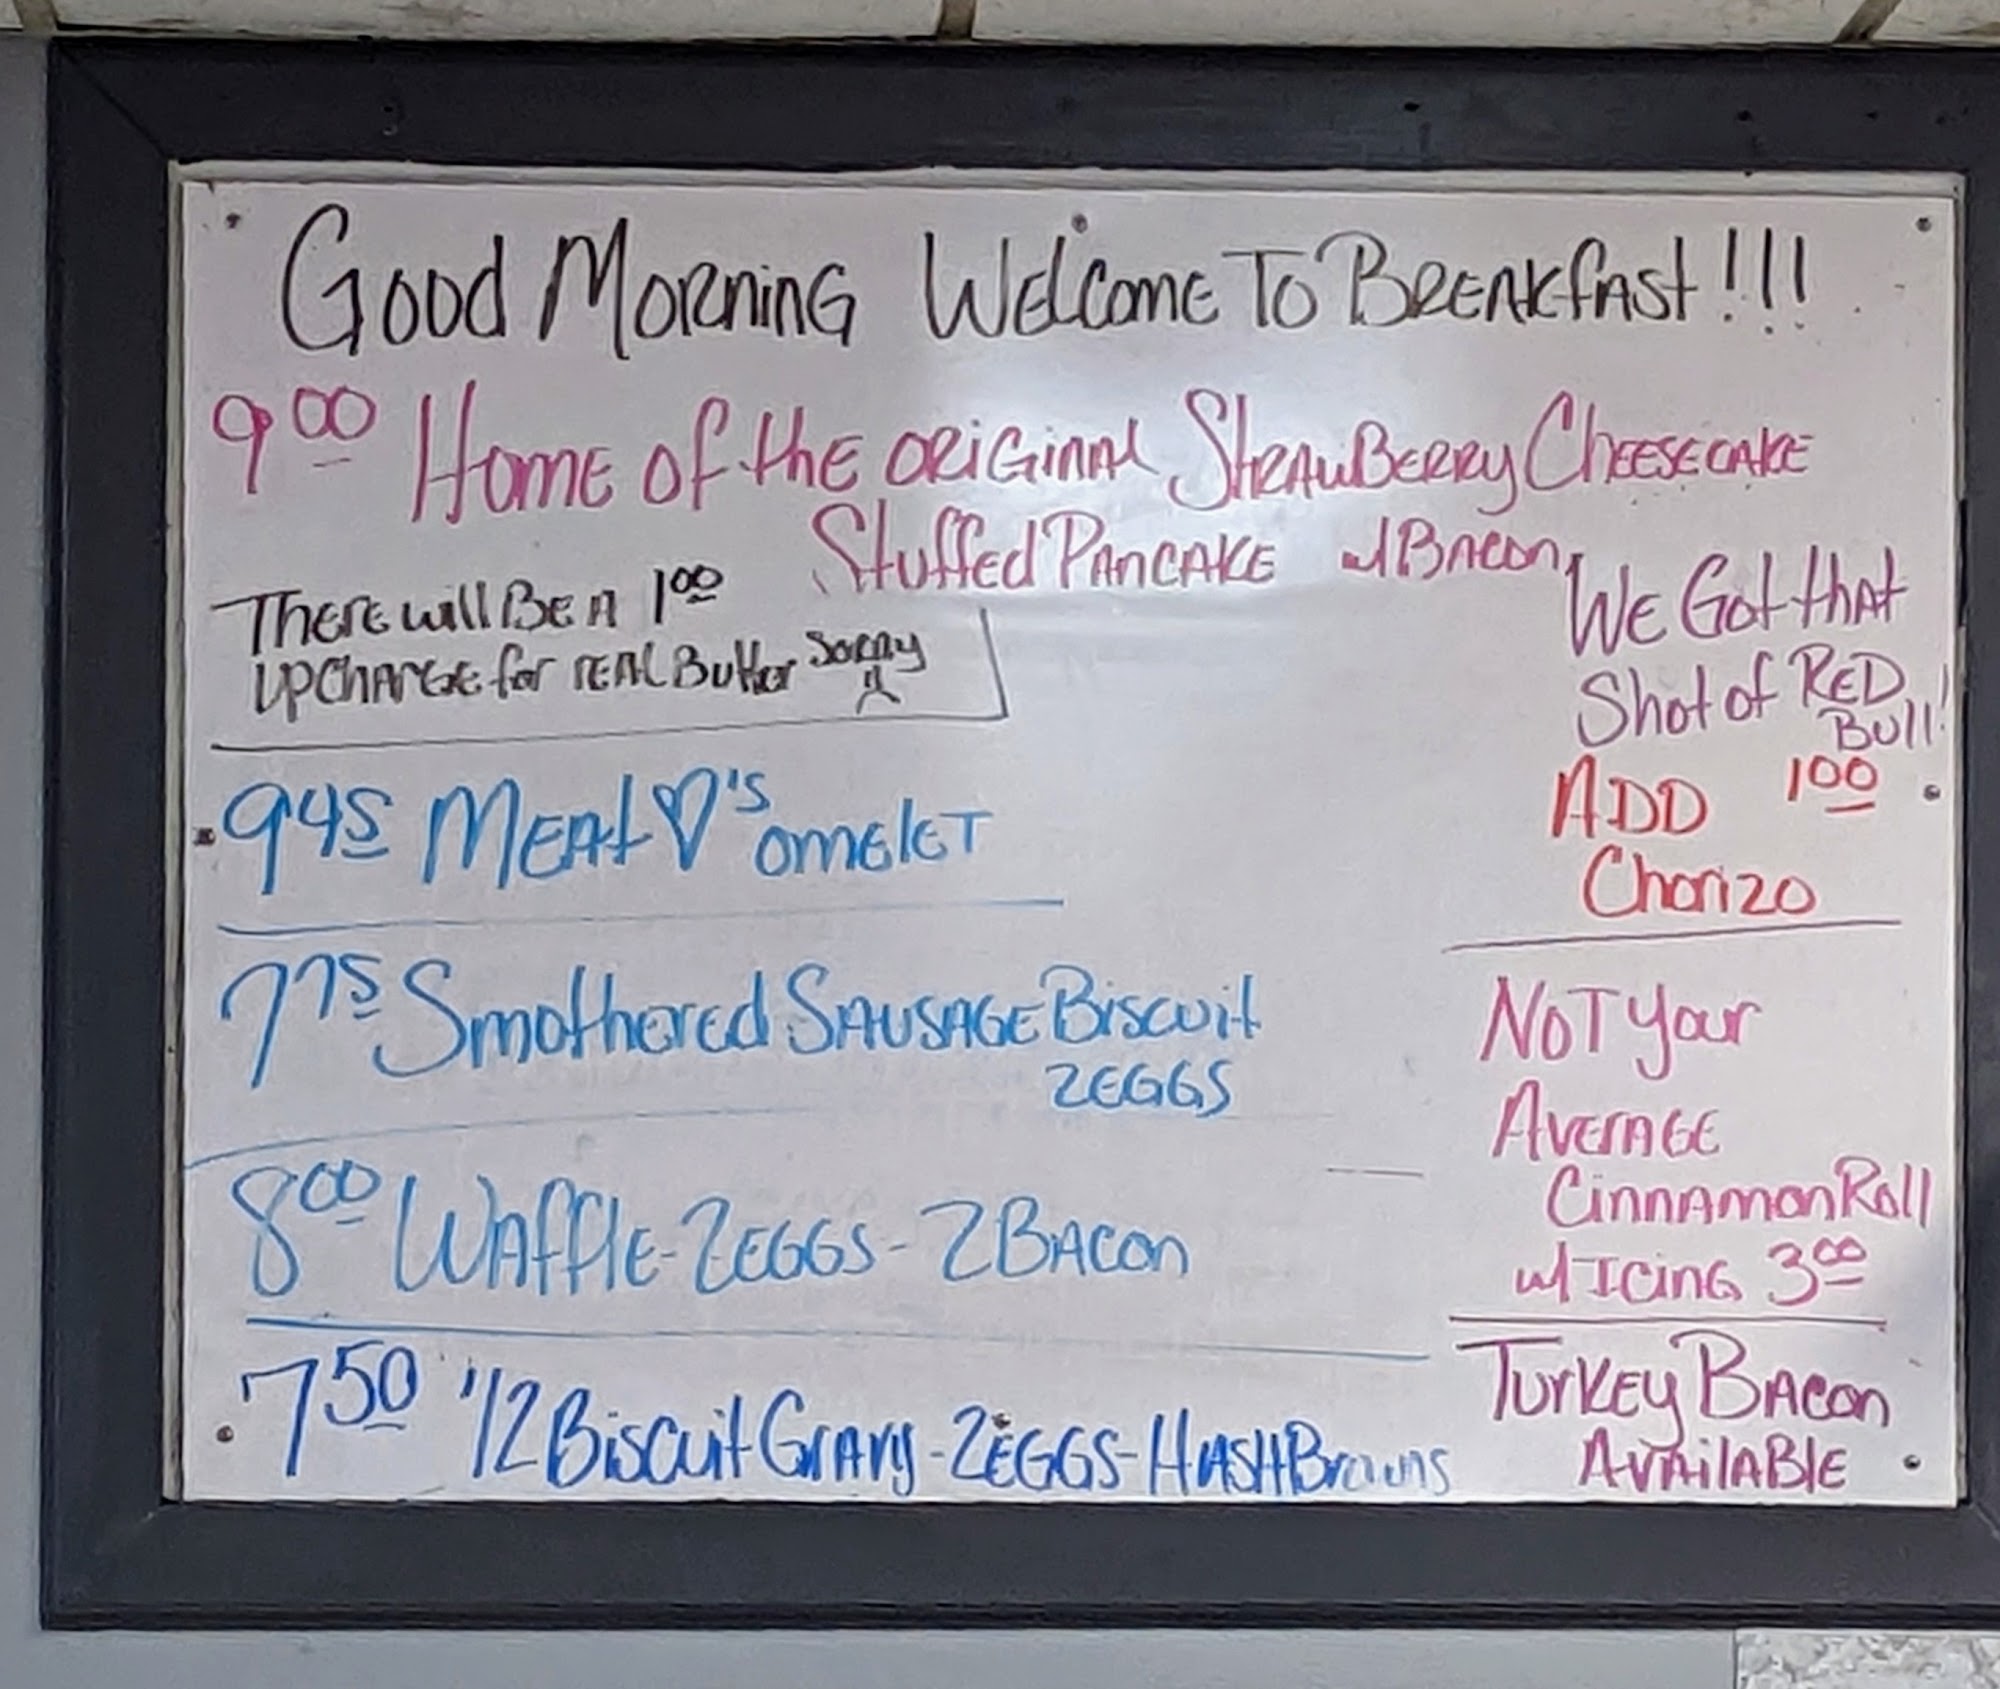 Good Morning Welcome To Breakfast!!!
9 00 Home of the original Strawberry Cheesecake
Stuffed Pancake w/ Bacon
There will Be A 1 00
upcharge for real Butter Sorry
9 45 Meat ♡'s omelet
7 75 Smothered Sausage Biscuit
2 Eggs
8 00 Waffle - 2 eggs - 2 Bacon
7 50 1/2 Biscuit Gravy - 2 Eggs - Hash Browns
We Got that
Shot of Red
Bull!
ADD 1 00
Chorizo
Not Your
Average
Cinnamon Roll
w/ Icing 3 00
Turkey Bacon
Available